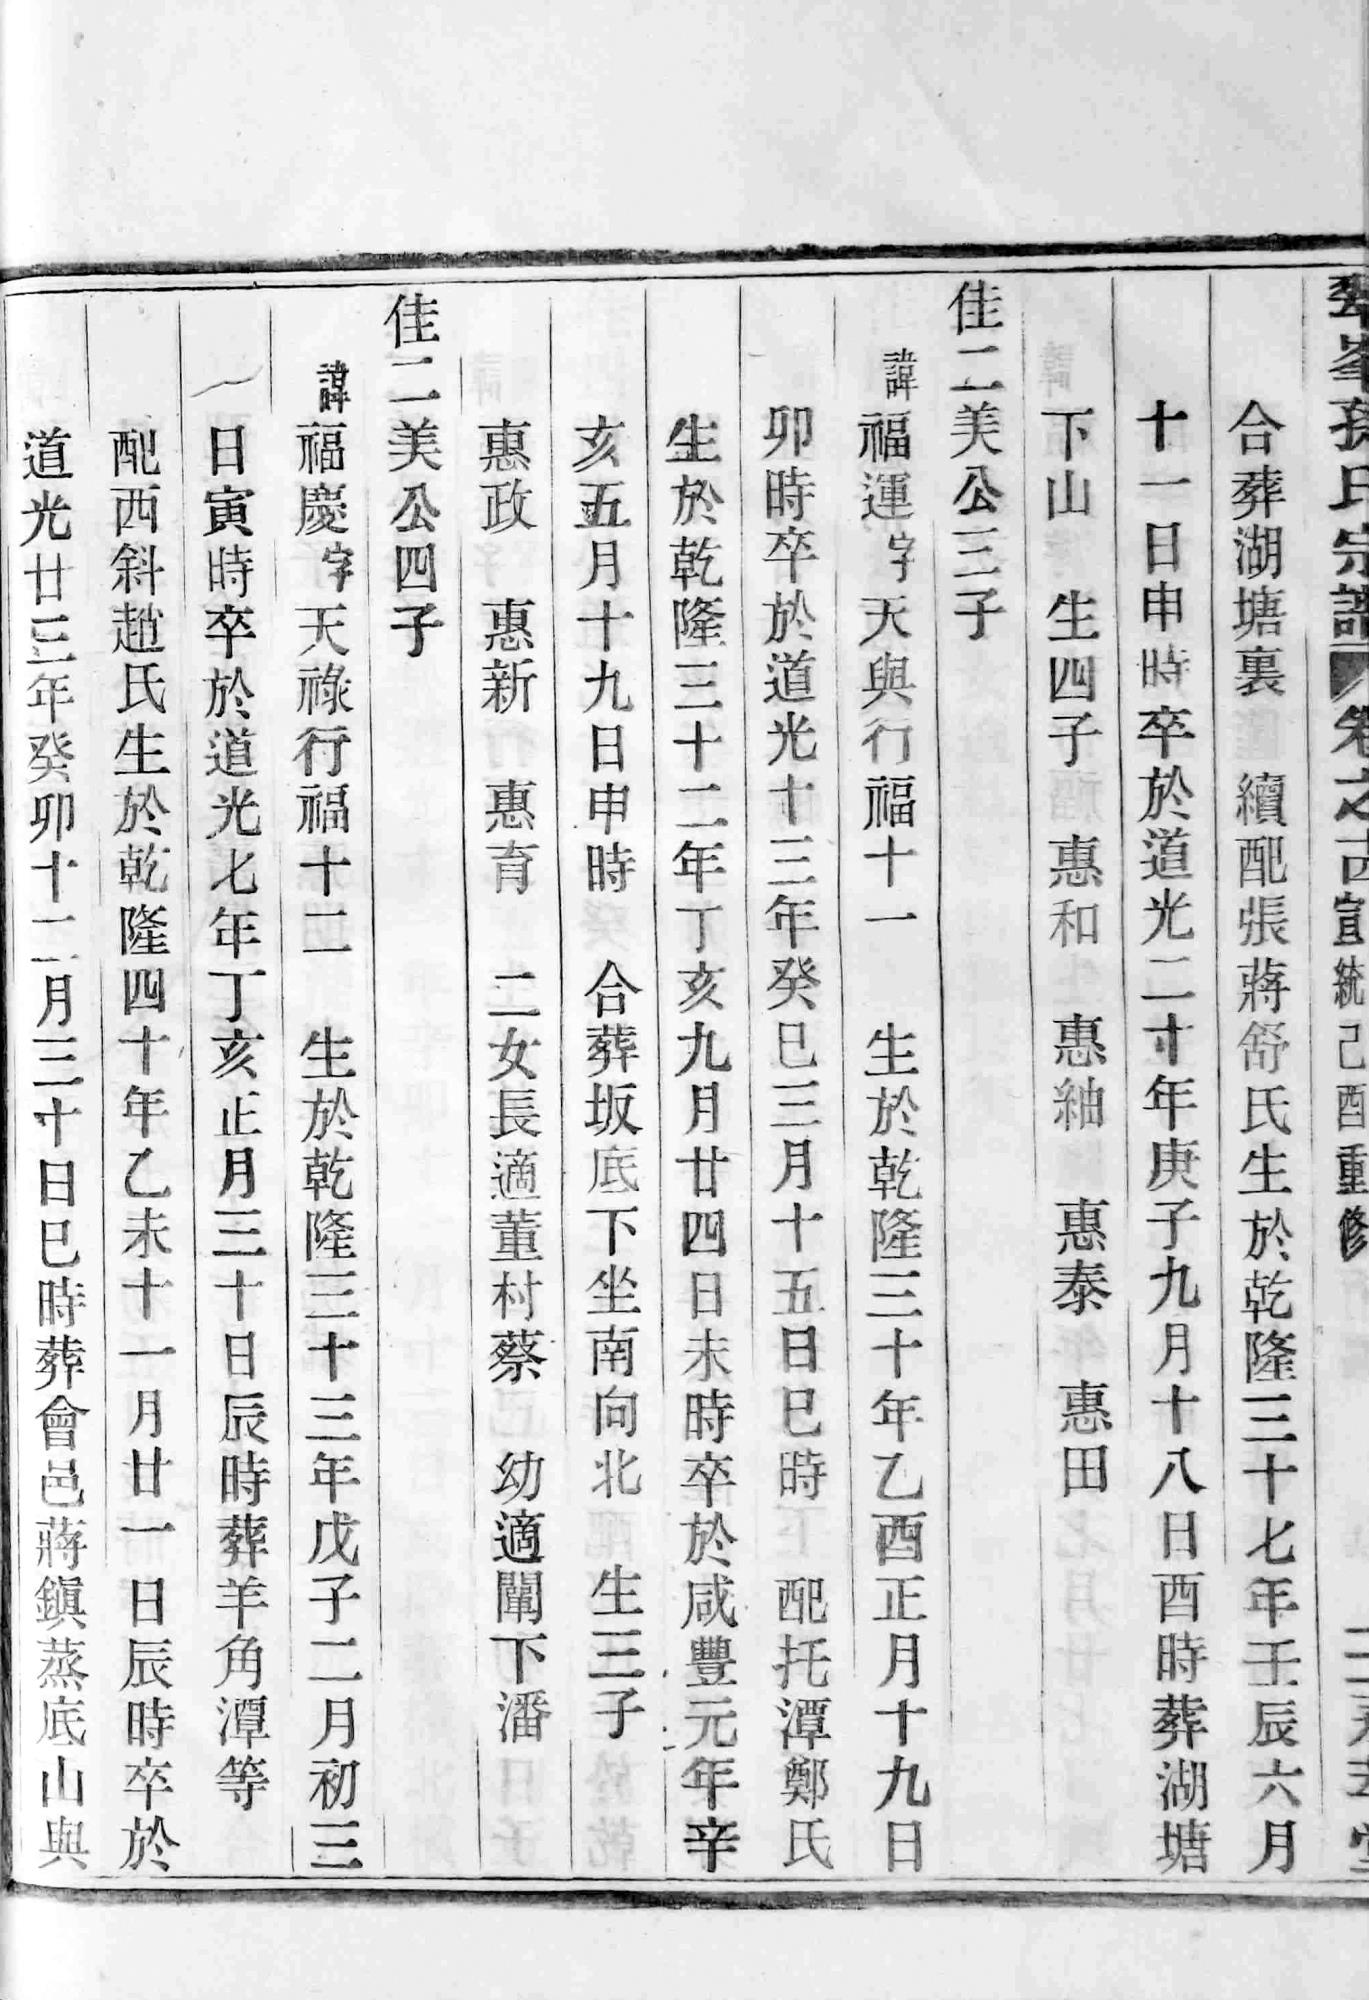 孫氏宗譜 卷之 宣統己酉重修
合葬湖塘裏 續配張蔣舒氏生於乾隆三十七年壬辰六月
十一日申時卒於道光二十年庚子九月十八日酉時葬湖塘
下山 生四子 惠和 惠紬 惠泰 惠田
佳二美公三子
諱福運字天與行福十一 生於乾隆三十年乙酉正月十九日
卯時卒於道光十三年癸巳三月十五日巳時 配托潭鄭氏
生於乾隆三十二年丁亥九月廿四日未時卒於咸豐元年辛
亥五月十九日申時 合葬坂底下坐南向北 生三子
惠政 惠新 惠育 二女長適董村蔡 幼適闈下潘
佳二美公四子
諱福慶字天祿行福十二 生於乾隆三十三年戊子二月初三
日寅時卒於道光七年丁亥正月三十日辰時葬羊角潭等
配西斜趙氏生於乾隆四十年乙未十一月廿一日辰時卒於
道光廿三年癸卯十二月三十日巳時葬會邑蔣鎭蒸底山與